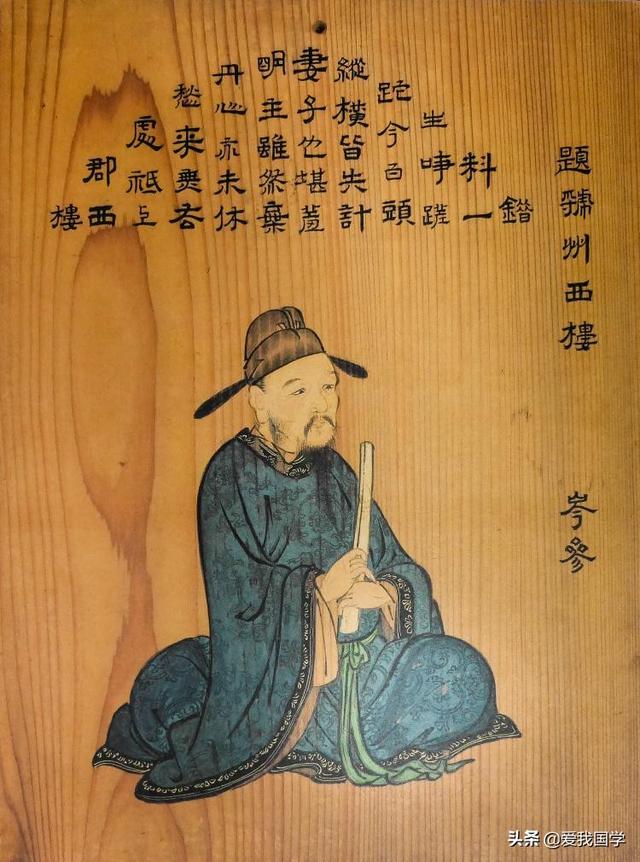 題虢州西樓
岑參
錯
料一
生事蹉
跎今白頭
縱橫皆失計
妻子也堪羞
明主雖然棄
丹心亦未休
愁來無去
處祗上
郡西
樓
头条 @爱我国学